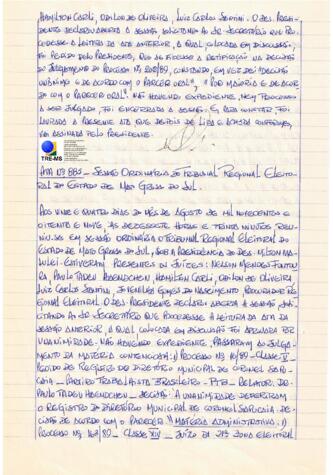 Hamilton Carli, Dálon de Oliveira, Luiz Carlos Santini. O Des. Presi-
dente declarou aberta a sessão solicitando ao Sr. Secretário que pro-
cedesse a leitura da ata anterior, a qual colocada em discussão,
foi pedido pelo Presidente, que se fizesse a retificação na decisão
do julgamento do Processo nº 208/89, constando, em vez de: "Decisão
unânime e de acordo com o parecer oral", "Por maioria e de acor
do com o parecer oral". Não havendo expediente, nem processos
a ser julgado, foi encerrada a sessão. E para constar foi
lavrada a presente ata que depois de lida e achada conforme,
vai assinada pelo Presidente.
TRE-MS
ATA Nº 882 - Sessão Ordinária do Tribunal Regional Eleito-
ral do Estado de Mato Grosso do Sul.
Aos vinte e quatro dias do mês de agosto de mil novecentos e
oitenta e nove, às dezessete horas e trinta minutos, reu-
niu-se em sessão ordinária o Tribunal Regional Eleitoral do
Estado de Mato Grosso do Sul, sob a presidência do Des. Milton Ma-
lulei. Estiveram presentes os Juízes: Nelson Mendes Fontou
ra, Paulo Tadeu Haendchen, Hamilton Carli, Dálon de Oliveira
Luiz Carlos Santini, Gomes do Nascimento, Procurador Re
gional Eleitoral. O Des. Presidente declarou aberta a sessão soli-
citando ao Sr. Secretário que procedesse a leitura da ata da
sessão anterior, a qual colocada em discussão foi aprovada por
unanimidade. Não havendo expediente, passaram ao julga-
mento da matéria contenciosa: 1) Processo nº 10/89 - Classe V
Pedido de Registro do Diretório Municipal de Coronel Sapu-
caia - Partido Trabalhista Brasileiro - PTB - Relator: Dr.
Paulo Tadeu Haendchen - Decisão: À unanimidade deferiram
o registro do Diretório Municipal de Coronel Sapucaia. De-
cisão de acordo com o parecer. Matéria Administrativa: 1)
Processo nº 163/89 - Classe XIV - Juízo da 21ª Zona Eleitoral